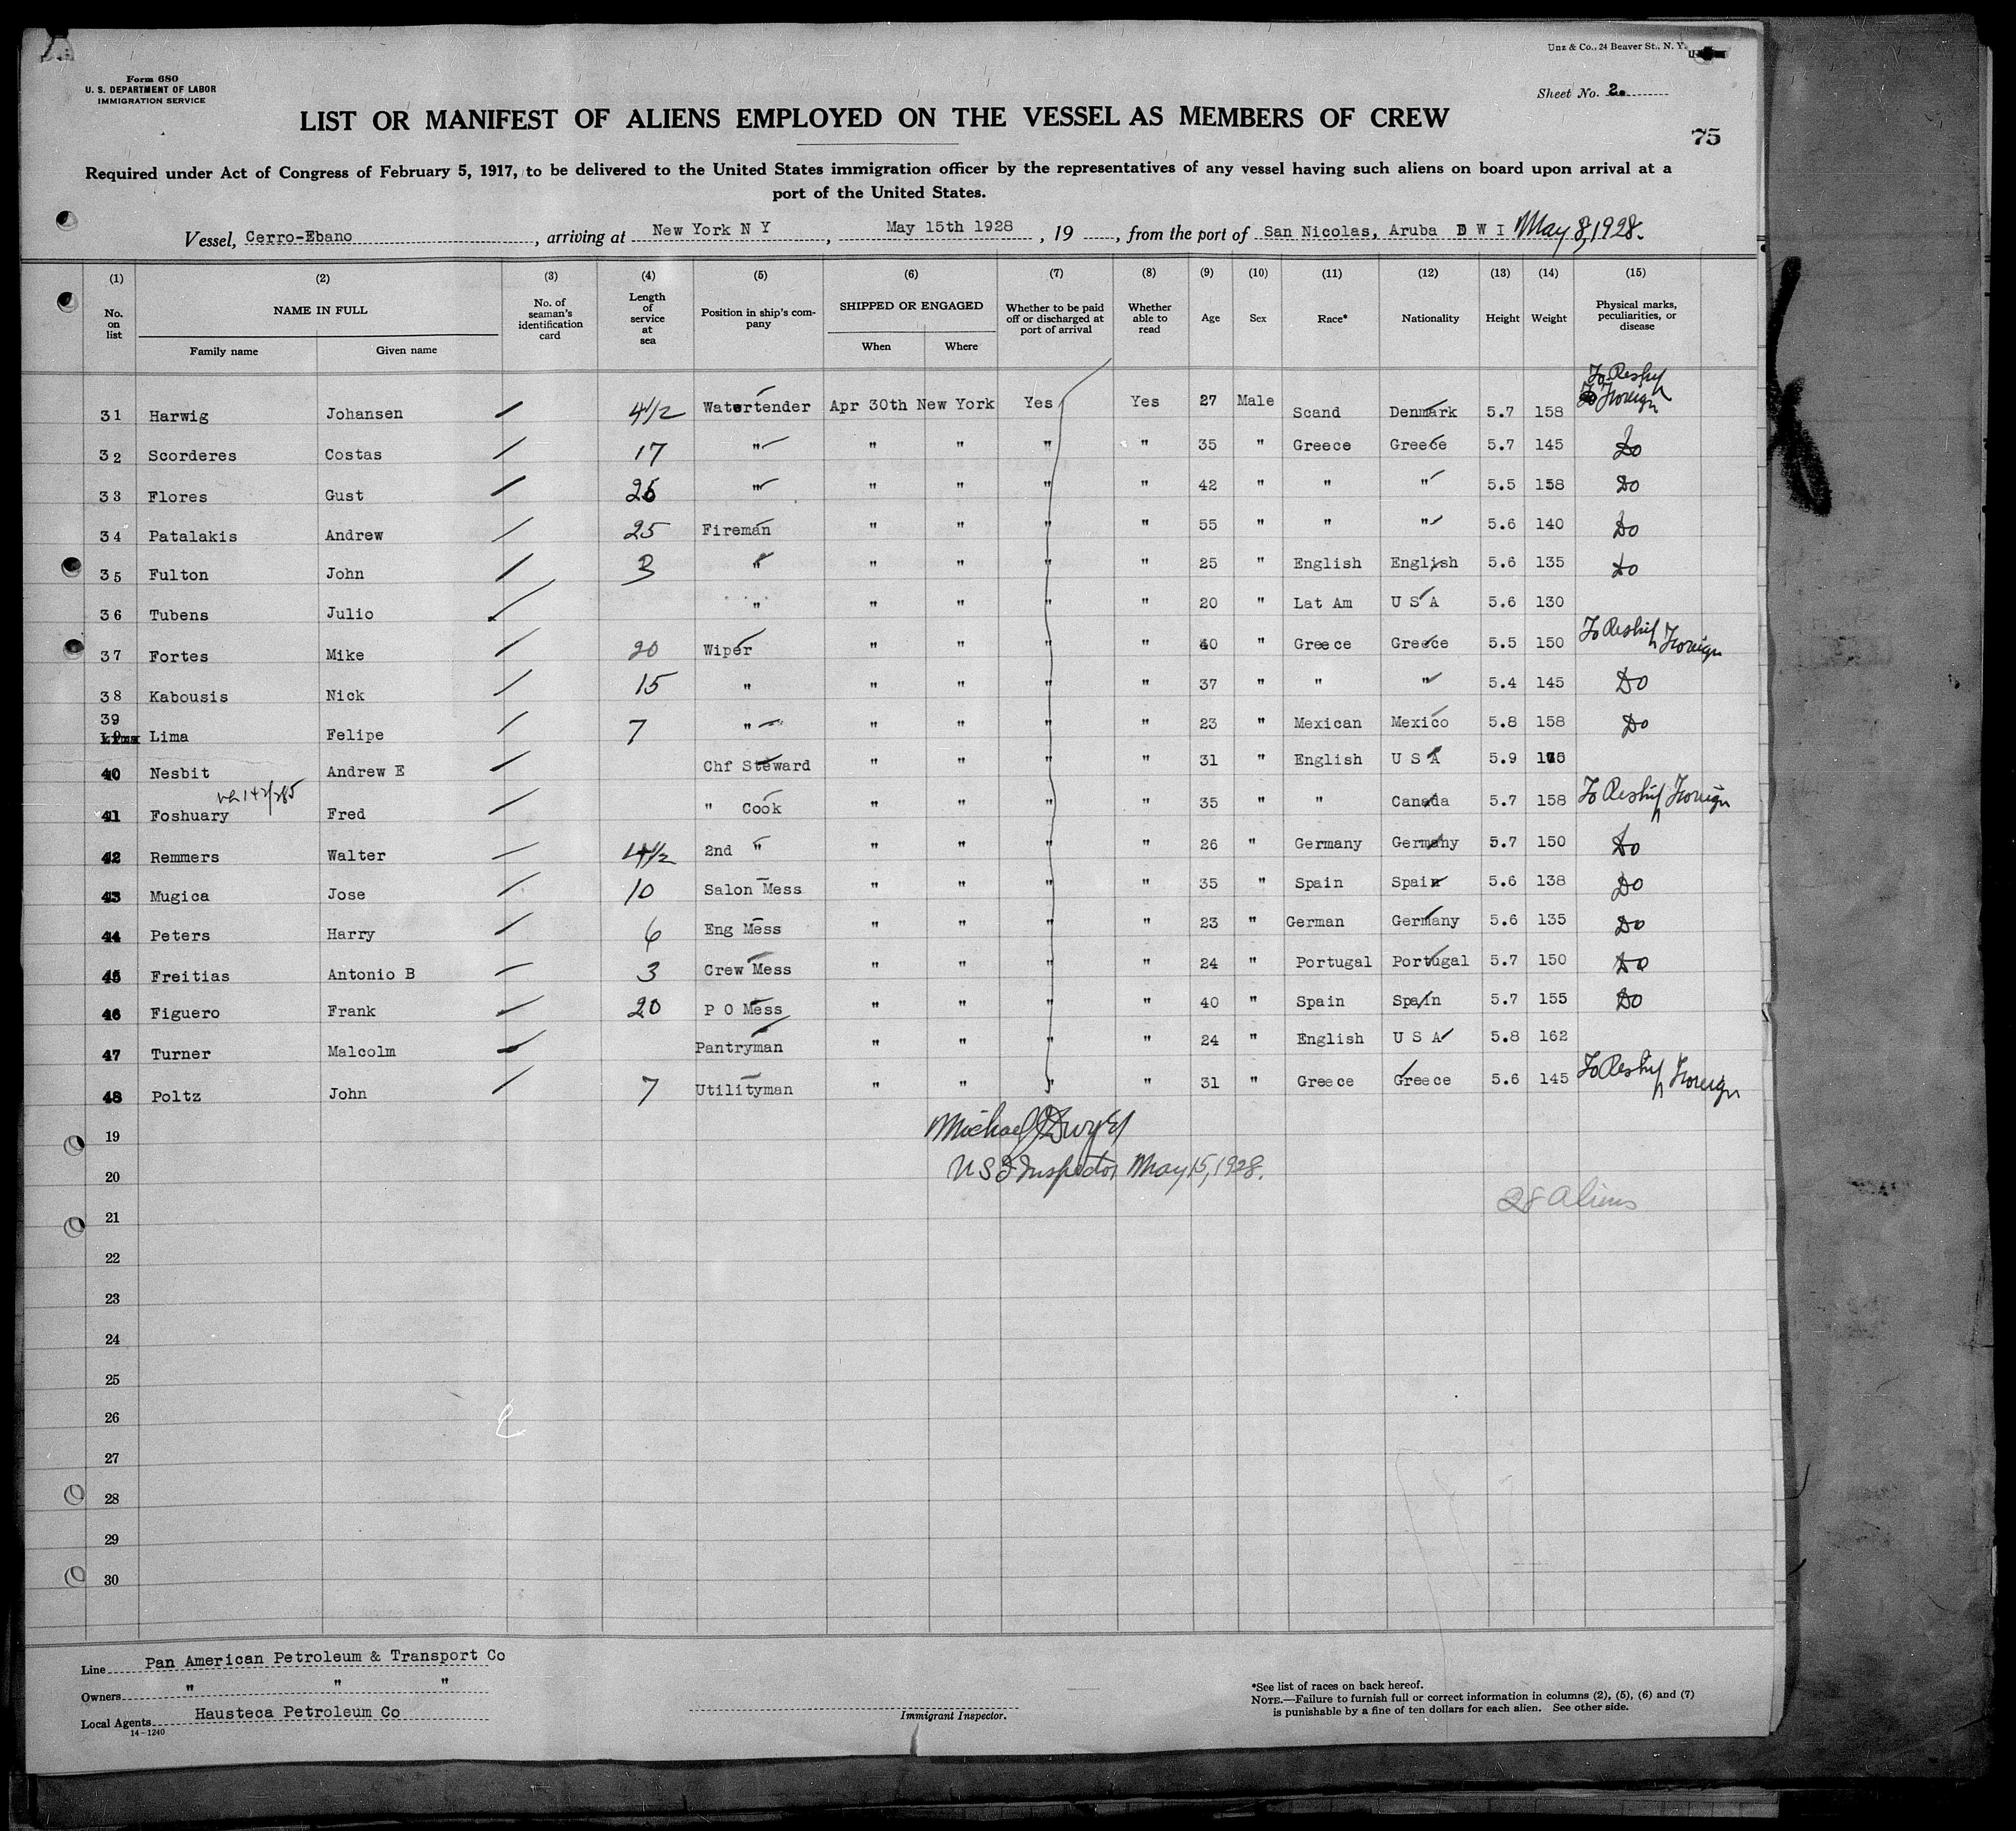 Unz & Co., 24 Beaver St., N. Y.
Form 680
U. S. DEPARTMENT OF LABOR
IMMIGRATION SERVICE
Sheet No. 2.
LIST OR MANIFEST OF ALIENS EMPLOYED ON THE VESSEL AS MEMBERS OF CREW
75
Required under Act of Congress of February 5, 1917, to be delivered to the United States immigration officer by the representatives of any vessel having such aliens on board upon arrival at a
port of the United States.
Vessel, Cerro-Ebano, arriving at New York N Y, May 15th 1928, 19, from the port of San Nicolas, Aruba D W I May 8, 1928.
(1) (2) (3) (4) (5) (6) (7) (8) (9) (10) (11) (12) (13) (14) (15)
No. on list NAME IN FULL Family name Given name No. of seaman's identification card Length of service at sea Position in ship's company SHIPPED OR ENGAGED When Where Whether to be paid off or discharged at port of arrival Whether able to read Age Sex Race* Nationality Height Weight Physical marks, peculiarities, or disease
31 Harwig Johansen 4½ Watertender Apr 30th New York Yes Yes 27 Male Scand Denmark 5.7 158 To Reship Foreign
32 Scorderes Costas 17 " " " " " 35 " Greece Greece 5.7 145 Do
33 Flores Gust 26 " " " " " 42 " " " 5.5 158 Do
34 Patalakis Andrew 25 Fireman " " " " 55 " " " 5.6 140 Do
35 Fulton John 3 " " " " " 25 " English English 5.6 135 Do
36 Tubens Julio " " " " " 20 " Lat Am U S A 5.6 130
37 Fortes Mike 20 Wiper " " " " 40 " Greece Greece 5.5 150 To Reship Foreign
38 Kabousis Nick 15 " " " " " 37 " " " 5.4 145 Do
39 Lima Felipe 7 " " " " " 23 " Mexican Mexico 5.8 158 Do
40 Nesbit Andrew E Chf Steward " " " " 31 " English U S A 5.9
41 Foshuary Fred " Cook " " " " 35 " " Canada 5.7 158 To Reship Foreign
42 Remmers Walter 4½ 2nd " " " " " 26 " Germany Germany 5.7 150 Do
43 Mugica Jose 10 Salon Mess " " " " 35 " Spain Spain 5.6 138 Do
44 Peters Harry 6 Eng Mess " " " " 23 " German Germany 5.6 135 Do
45 Freitias Antonio B 3 Crew Mess " " " " 24 " Portugal Portugal 5.7 150 Do
46 Figuero Frank 20 P O Mess " " " " 40 " Spain Spain 5.7 155 Do
47 Turner Malcolm Pantryman " " " " 24 " English U S A 5.8 162
48 Poltz John 7 Utilityman " " " " 31 " Greece Greece 5.6 145 To Reship Foreign
19 Michael J Dwyer
20 U S I Inspector May 15, 1928.
21 28 Aliens
22
23
24
25
26
27
28
29
30
Line Pan American Petroleum & Transport Co
Owners " " "
Local Agents Hausteca Petroleum Co
14-1240
Immigrant Inspector.
*See list of races on back hereof.
NOTE.—Failure to furnish full or correct information in columns (2), (5), (6) and (7)
is punishable by a fine of ten dollars for each alien. See other side.